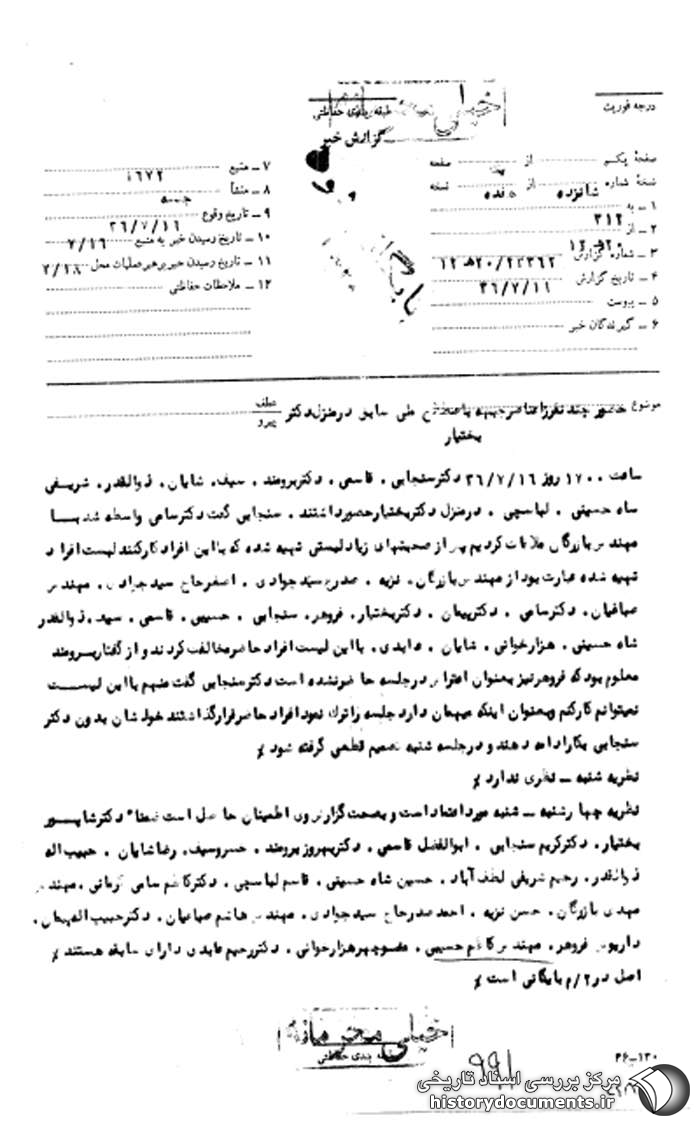 خیلی محرمانه
درجه فوریت
طبقه بندی حفاظتی
گزارش خبر
صفحهٔ یکم از صفحه
نسخهٔ شماره شانزده از نسخه
۱ ـ به ۳۱۲
۲ ـ از ۲۰هـ۱۲
۳ ـ شماره گزارش ۱۲هـ۲۰/۲۳۳۶۲
۴ ـ تاریخ گزارش ۳۶/۷/۱۶
۵ ـ پیوست
۶ ـ گیرندگان خبر
۷ ـ منبع ۱۶۷۲
۸ ـ منشأ
۹ ـ تاریخ وقوع ۳۶/۷/۱۶
۱۰ ـ تاریخ رسیدن خبر به منبع ۷/۱۶
۱۱ ـ تاریخ رسیدن خبر برهبر عملیات محل
۱۲ ـ ملاحظات حفاظتی
بایگانی
موضوع حضور چند نفر از عناصر جبهه باصطلاح ملی سابق در منزل دکتر
بختیار
عطف
پیرو
ساعت ۱۷۰۰ روز ۳۶/۷/۱۶ دکتر سنجابی ، قاسمی ، دکتر برومند ، سیف، شایان، ذوالقدر ، شریفی
شاه حسینی ، لباسچی ، در منزل دکتر بختیار حضور داشتند . سنجابی گفت دکتر سامی واسطه شد با
مهندس بازرگان ملاقات کردیم پس از صحبتهای زیاد لیستی تهیه شده که با این افراد کار کنند لیست افراد
تهیه شده عبارت بود از مهندس بازرگان، نزیه ، صدر حاج سید جوادی ، اصغر حاج سید جوادی ، مهندس
صباغیان، دکتر سامی ، دکتر پیمان ، دکتر بختیار، فروهر، سنجابی ، حسیبی ، قاسمی ، سیف، ذوالقدر
شاه حسینی ، هزارخوانی ، شایان ، عابدی . با این لیست افراد حاضر مخالفت کردند و از گفتار برومند
معلوم بود که فروهر نیز بعنوان اعتراض در جلسه حاضر نشده است دکتر سنجابی گفت منهم با این لیست
نمیتوانم کار کنم و بعنوان اینکه میهمان دارد جلسه را ترک نمود افراد حاضر قرار گذاشتند خودشان بدون دکتر
سنجابی بکار ادامه دهند و در جلسه شنبه تصمیم قطعی گرفته شود /
نظریه شنبه ــ نظری ندارد /
نظریه چهارشنبه ــ شنبه مورد اعتماد است و بصحت گزارش وی اطمینان حاصل است ضمناً دکتر شاپور
بختیار ، دکتر کریم سنجابی ، ابوالفضل قاسمی ، دکتر بهروز برومند ، خسرو سیف، رضا شایان ، حبیب اله
ذوالقدر ، رحیم شریفی لطف آباد ، حسین شاه حسینی ، قاسم لباسچی ، دکتر کاظم سامی کرمانی ، مهندس
مهدی بازرگان ، حسن نزیه ، احمد صدر حاج سید جوادی ، مهندس هاشم صباغیان ، دکتر حبیب اله پیمان،
داریوش فروهر ، مهندس کاظم حسیبی ، منوچهر هزارخوانی ، دکتر رحیم عابدی دارای سابقه هستند /
اصل در ۲/م بایگانی است /
خیلی محرمانه
طبقه بندی حفاظتی
۹۹۱
۳۶-۱۲۰
مرکز بررسی اسناد تاریخی
historydocuments.ir